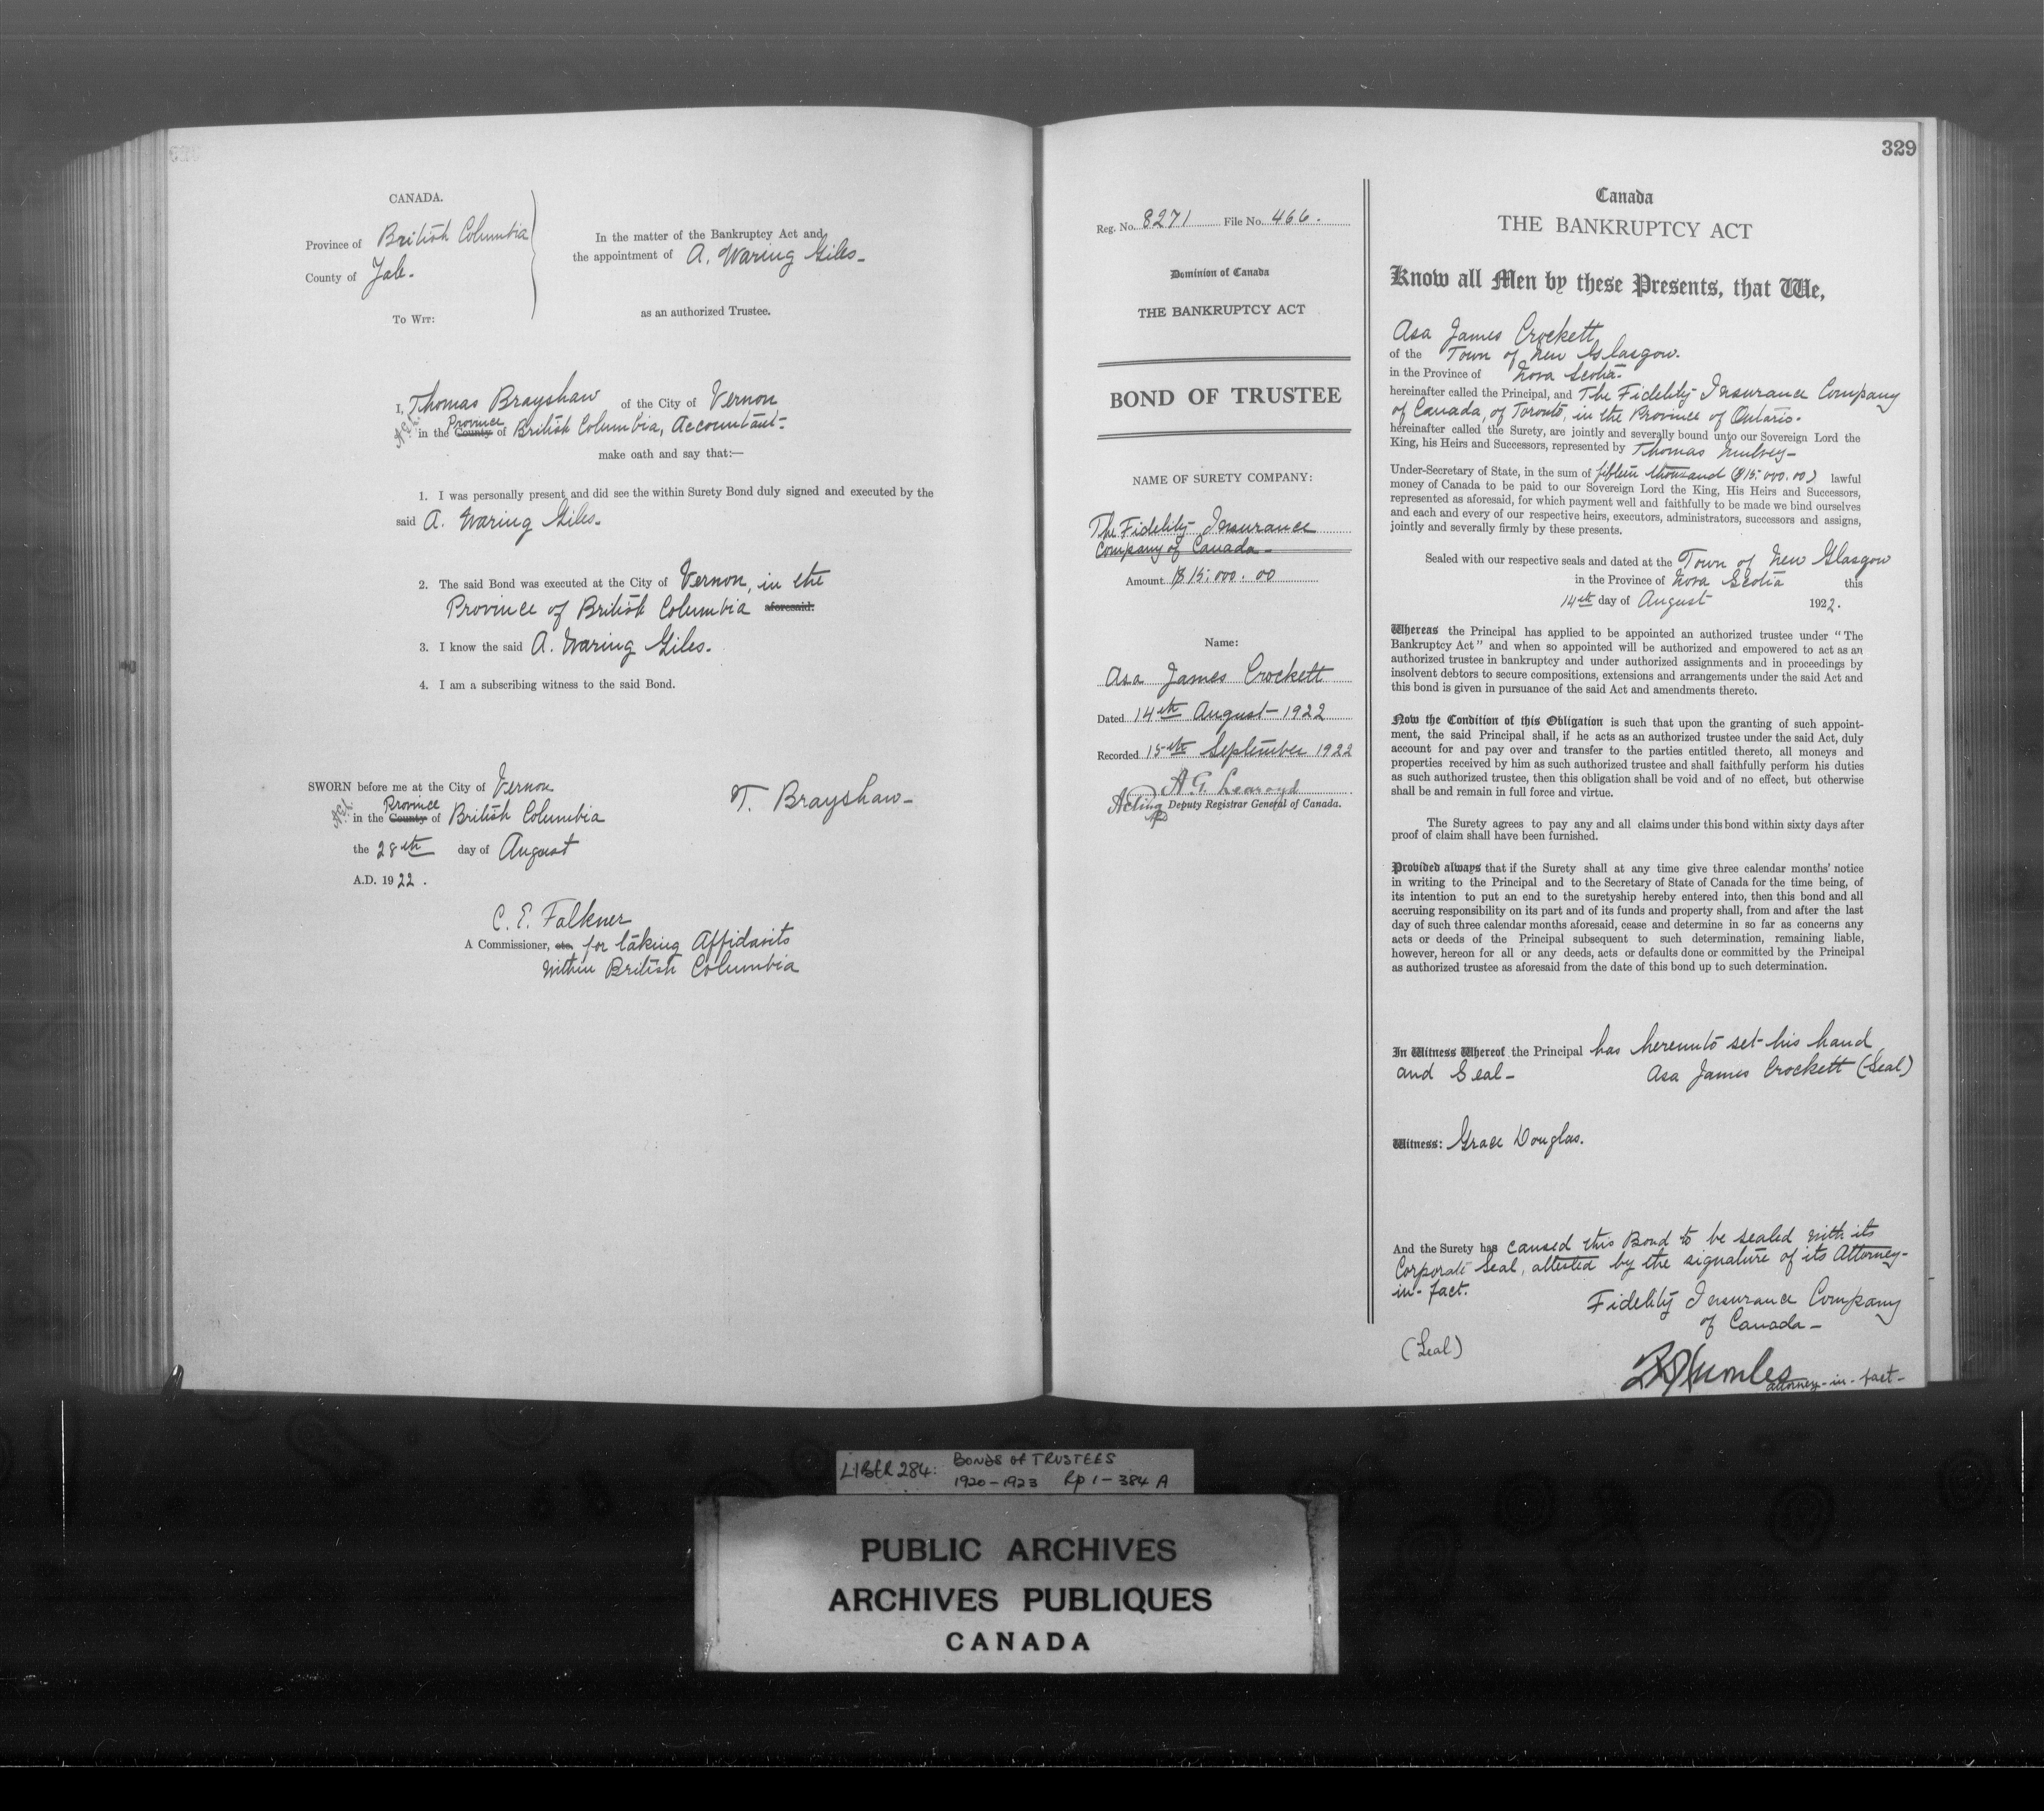 CANADA.
Province of British Columbia
County of Yale.
To Wit:
In the matter of the Bankruptcy Act and
the appointment of A. Waring Giles.
as an authorized Trustee.
I, Thomas Brayshaw of the City of Vernon
Province
in the County of British Columbia, Accountant.
make oath and say that:—
1. I was personally present and did see the within Surety Bond duly signed and executed by the
said A. Waring Giles.
2. The said Bond was executed at the City of Vernon, in the
Province of British Columbia aforesaid.
3. I know the said A. Waring Giles.
4. I am a subscribing witness to the said Bond.
SWORN before me at the City of Vernon
Province
in the County of British Columbia
the 28th day of August
A.D. 1922.
T. Brayshaw
C. E. Falkner
A Commissioner, etc. for taking Affidavits
within British Columbia
Reg. No. 8271 File No. 466.
Dominion of Canada
THE BANKRUPTCY ACT
BOND OF TRUSTEE
NAME OF SURETY COMPANY:
The Fidelity Insurance
Company of Canada
Amount $15,000.00
Name:
Asa James Crockett
Dated 14th August 1922
Recorded 15th September 1922
A G Learoyd
Acting Deputy Registrar General of Canada.
329
Canada
THE BANKRUPTCY ACT
Know all Men by these Presents, that We,
Asa James Crockett
of the Town of New Glasgow.
in the Province of Nova Scotia
hereinafter called the Principal, and The Fidelity Insurance Company
of Canada, of Toronto, in the Province of Ontario.
hereinafter called the Surety, are jointly and severally bound unto our Sovereign Lord the
King, his Heirs and Successors, represented by Thomas Mulvey
Under-Secretary of State, in the sum of fifteen thousand ($15,000.00) lawful
money of Canada to be paid to our Sovereign Lord the King, His Heirs and Successors,
represented as aforesaid, for which payment well and faithfully to be made we bind ourselves
and each and every of our respective heirs, executors, administrators, successors and assigns,
jointly and severally firmly by these presents.
Sealed with our respective seals and dated at the Town of New Glasgow
in the Province of Nova Scotia this
14th day of August 1922.
Whereas the Principal has applied to be appointed an authorized trustee under "The
Bankruptcy Act" and when so appointed will be authorized and empowered to act as an
authorized trustee in bankruptcy and under authorized assignments and in proceedings by
insolvent debtors to secure compositions, extensions and arrangements under the said Act and
this bond is given in pursuance of the said Act and amendments thereto.
Now the Condition of this Obligation is such that upon the granting of such appoint-
ment, the said Principal shall, if he acts as an authorized trustee under the said Act, duly
account for and pay over and transfer to the parties entitled thereto, all moneys and
properties received by him as such authorized trustee and shall faithfully perform his duties
as such authorized trustee, then this obligation shall be void and of no effect, but otherwise
shall be and remain in full force and virtue.
The Surety agrees to pay any and all claims under this bond within sixty days after
proof of claim shall have been furnished.
Provided always that if the Surety shall at any time give three calendar months' notice
in writing to the Principal and to the Secretary of State of Canada for the time being, of
its intention to put an end to the suretyship hereby entered into, then this bond and all
accruing responsibility on its part and of its funds and property shall, from and after the last
day of such three calendar months aforesaid, cease and determine in so far as concerns any
acts or deeds of the Principal subsequent to such determination, remaining liable,
however, hereon for all or any deeds, acts or defaults done or committed by the Principal
as authorized trustee as aforesaid from the date of this bond up to such determination.
In Witness Whereof the Principal has hereunto set his hand
and Seal
Asa James Crockett (Seal)
Witness: Grace Douglas.
And the Surety has caused this Bond to be sealed with its
Corporate Seal, attested by the signature of its Attorney-
in-fact.
Fidelity Insurance Company
of Canada
(Seal)
attorney-in-fact
LIBER 284: BONDS OF TRUSTEES
1920-1923 Rp 1-384 A
PUBLIC ARCHIVES
ARCHIVES PUBLIQUES
CANADA